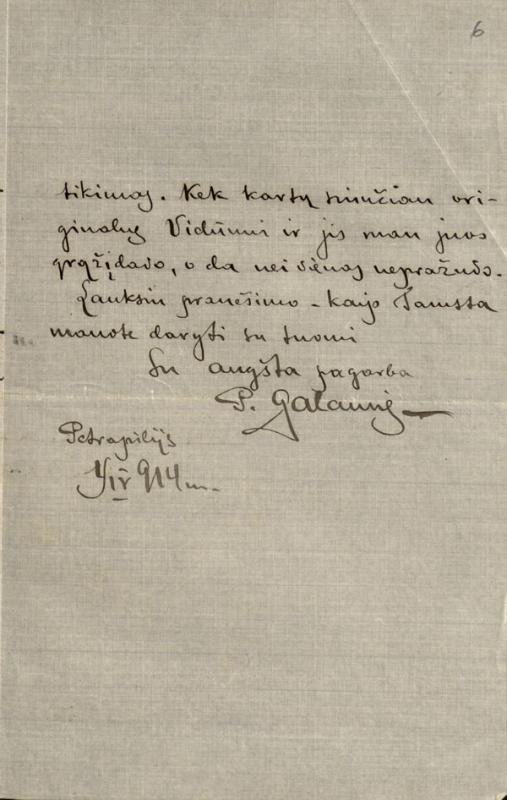 6
tikimas. Kek kartų siunčiau ori-
ginalus Vidūnui ir jis man juos
grąžįdavo, o da nei vienas nepražuvo.
Lauksiu pranešimo - kaip Tamsta
manote daryti su tuomi
Su augšta pagarba
P. Galaunė
Petrapilįs
1/IV 914 m.